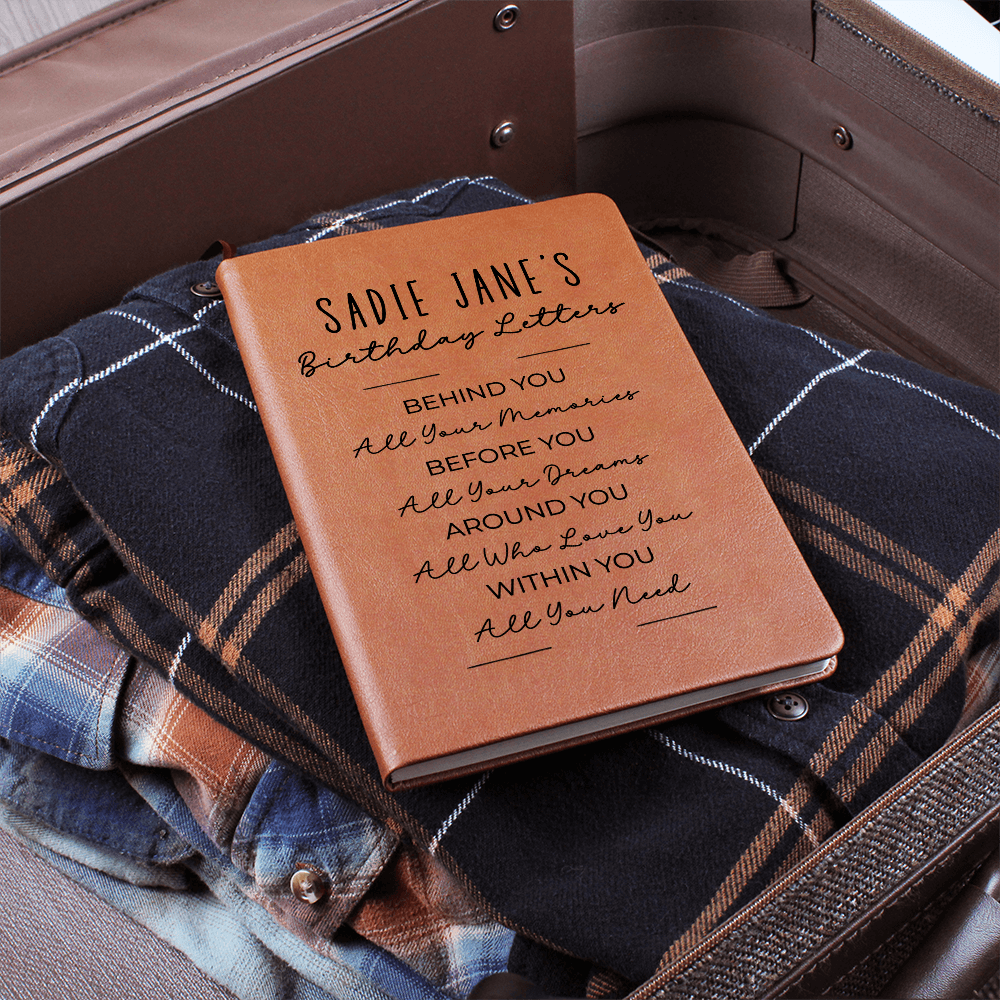 SADIE JANE'S
Birthday Letters
BEHIND YOU
All Your Memories
BEFORE YOU
All Your Dreams
AROUND YOU
All Who Love You
WITHIN YOU
All You Need